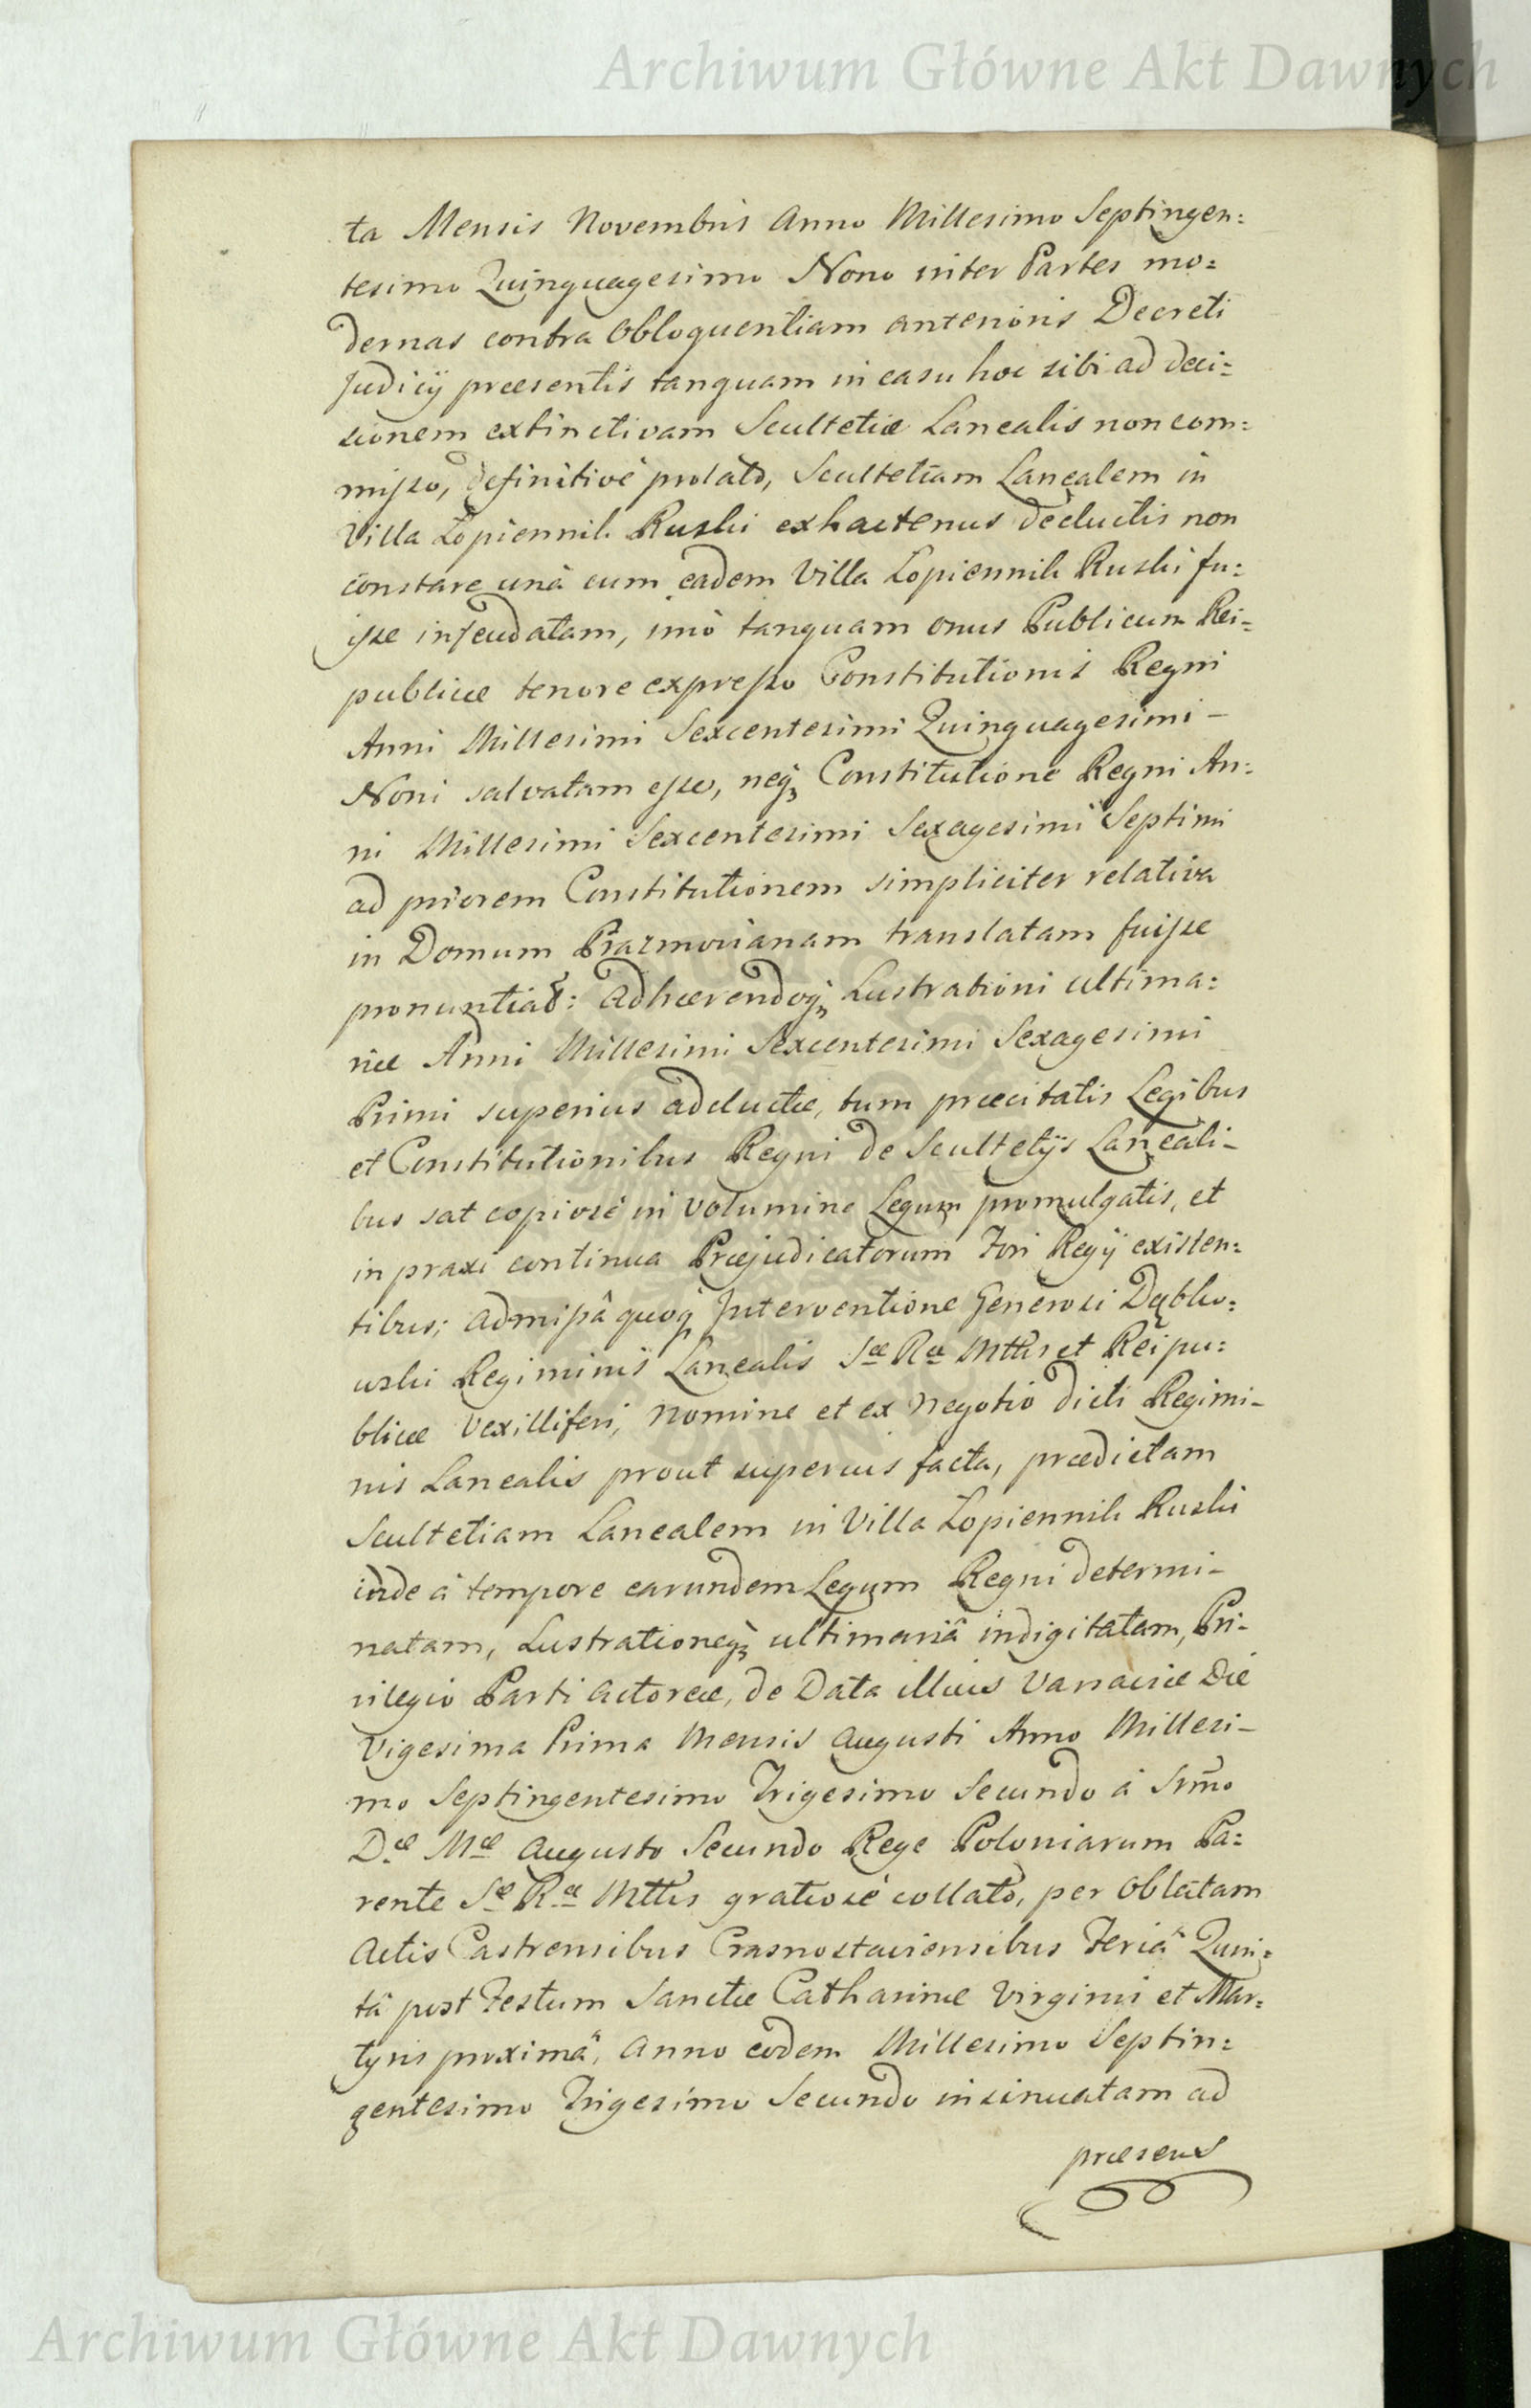 Archiwum Główne Akt Dawnych
ta Mensis Novembris Anno Millesimo Septingen:
tesimo Quinquagesimo Nono inter Partes mo:
dernas contra Obloquentiam anterioris Decreti
Judicij præsentis tanquam in casu hoc sibi ad deci:
sionem extinctivam Scultetiæ Lanealis non com:
misso, definitivè prolatô, Scultetiam Lanealem in
Villa Łopiennik Ruski exhactenus deductis non
constare unâ cum eadem Villa Łopiennik Ruski fu:
isse infeudatam, imò tanquam onus Publicum Rei:
publicæ tenore expresso Constitutionis Regni
Anni Millesimi Sexcentesimi Quinquagesimi –
Noni salvatam esse, neqꝫ Constitutione Regni An:
ni Millesimi Sexcentesimi Sexagesimi Septimi
ad priorem Constitutionem simpliciter relativa
in Domum Prazmovianam translatam fuisse
pronuntiat: adhærendoqꝫ Lustrationi ultima:
riæ Anni Millesimi Sexcentesimi Sexagesimi
Primi superius adductæ, tum præcitatis Legibus
et Constitutionibus Regni de Scultetijs Laneali–
bus sat copiosè in Volumine Legum promulgatis, et
in praxi continua Præjudicatorum Fori Regij existen:
tibus; admissâ quoqꝫ Interventione Generosi Dąbko:
wski Regiminis Lanealis Sæ Ræ Mttis et Reipu:
blicæ Vexilliferi, nomine et ex negotio dicti Regimi–
nis Lanealis prout superius facta, prædictam
Scultetiam Lanealem in Villa Łopiennik Ruski
inde à tempore earundem Legum Regni determi–
natam, Lustrationeqꝫ ultimariâ indigitatam, Pri–
vilegio Parti Actoreæ, de Data illius Varsaviæ Die
Vigesima Prima Mensis Augusti Anno Millesi–
mo Septingentesimo Trigesimo Secundo à Srmo
Dæ Mæ Augusto Secundo Rege Poloniarum Pa:
rente Sæ Ræ Mttis gratiosè collatô, per Oblatam
Actis Castrensibus Crasnostaviensibus Feriâ Quin:
tâ post Festum Sanctæ Catharinæ Virginis et Mar:
tyris proximâ, Anno eodem Millesimo Septin:
gentesimo Trigesimo Secundo insinuatam ad
præsens
Archiwum Główne Akt Dawnych